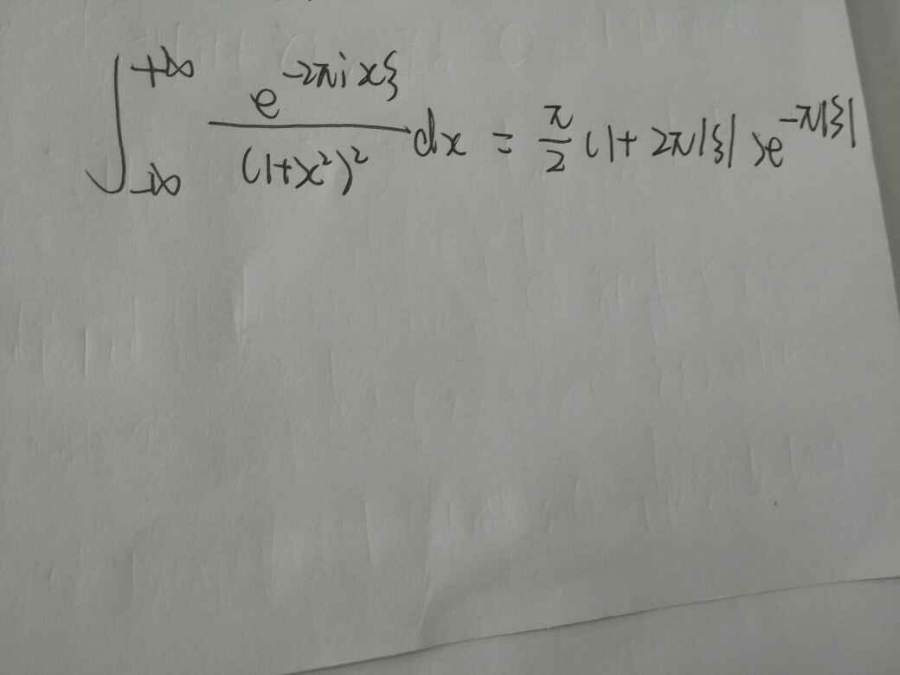 ∫_{-∞}^{+∞} \frac{e^{-2πixξ}}{(1+x²)²} dx = \frac{π}{2} (1+2π|ξ|)e^{-π|ξ|}